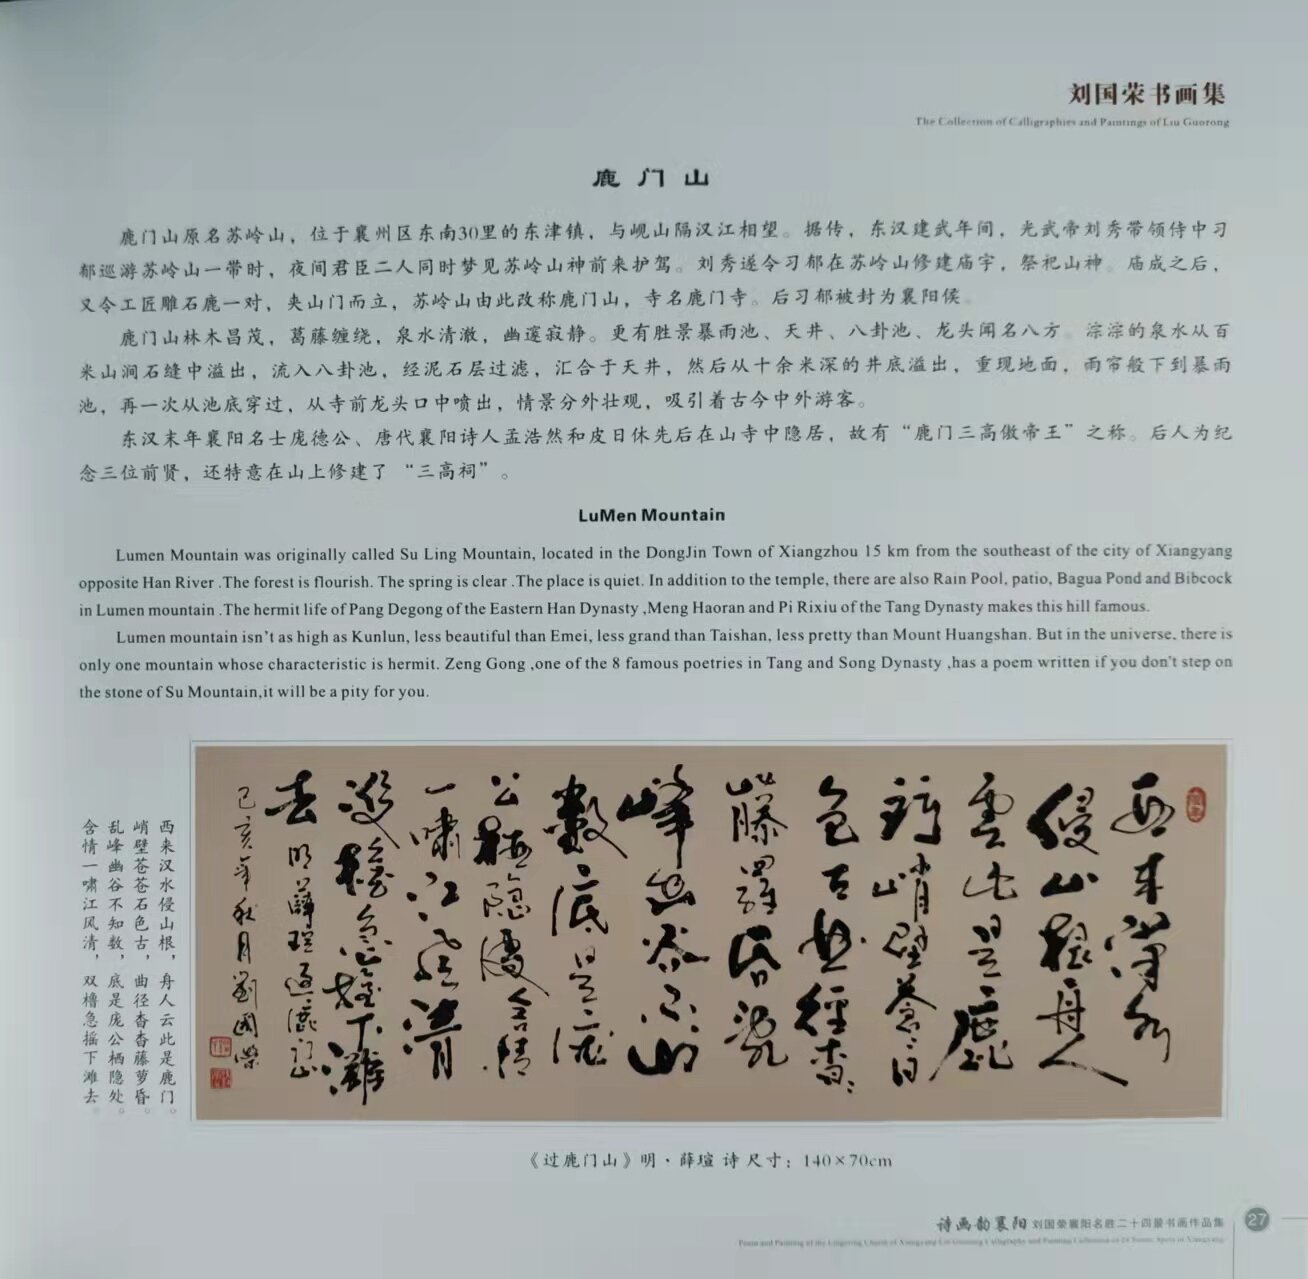 刘国荣书画集
The Collection of Calligraphies and Paintings of Liu Guorong
鹿门山
鹿门山原名苏岭山，位于襄州区东南30里的东津镇，与岘山隔汉江相望。据传，东汉建武年间，光武帝刘秀带领侍中习
郁巡游苏岭山一带时，夜间君臣二人同时梦见苏岭山神前来护驾。刘秀遂令习郁在苏岭山修建庙宇，祭祀山神。庙成之后，
又令工匠雕石鹿一对，夹山门而立，苏岭山由此改称鹿门山，寺名鹿门寺。后习郁被封为襄阳侯。
鹿门山林木昌茂，葛藤缠绕，泉水清澈，幽邃寂静。更有胜景暴雨池、天井、八卦池、龙头闻名八方。淙淙的泉水从百
米山涧石缝中溢出，流入八卦池，经泥石层过滤，汇合于天井，然后从十余米深的井底溢出，重现地面，雨帘般下到暴雨
池，再一次从池底穿过，从寺前龙头口中喷出，情景分外壮观，吸引着古今中外游客。
东汉末年襄阳名士庞德公、唐代襄阳诗人孟浩然和皮日休先后在山寺中隐居，故有“鹿门三高傲帝王”之称。后人为纪
念三位前贤，还特意在山上修建了“三高祠”。
LuMen Mountain
Lumen Mountain was originally called Su Ling Mountain, located in the DongJin Town of Xiangzhou 15 km from the southeast of the city of Xiangyang
opposite Han River .The forest is flourish. The spring is clear .The place is quiet. In addition to the temple, there are also Rain Pool, patio, Bagua Pond and Bibcock
in Lumen mountain .The hermit life of Pang Degong of the Eastern Han Dynasty ,Meng Haoran and Pi Rixiu of the Tang Dynasty makes this hill famous.
Lumen mountain isn't as high as Kunlun, less beautiful than Emei, less grand than Taishan, less pretty than Mount Huangshan. But in the universe, there is
only one mountain whose characteristic is hermit. Zeng Gong ,one of the 8 famous poetries in Tang and Song Dynasty ,has a poem written if you don't step on
the stone of Su Mountain,it will be a pity for you.
西来汉水
侵山根舟人
云此是鹿
门峭壁苍苍石
色古曲径杳杳
藤萝昏乱
峰幽谷不知
数底是庞
公栖隐处含情
一啸江风清
双橹急摇下滩
去明薛瑄过鹿门山
己亥年秋月刘国荣
西来汉水侵山根，舟人云此是鹿门。
峭壁苍苍石色古，曲径杳杳藤萝昏。
乱峰幽谷不知数，底是庞公栖隐处。
含情一啸江风清，双橹急摇下滩去。
《过鹿门山》明·薛瑄 诗 尺寸：140×70cm
诗画韵襄阳 刘国荣襄阳名胜二十四景书画作品集
27